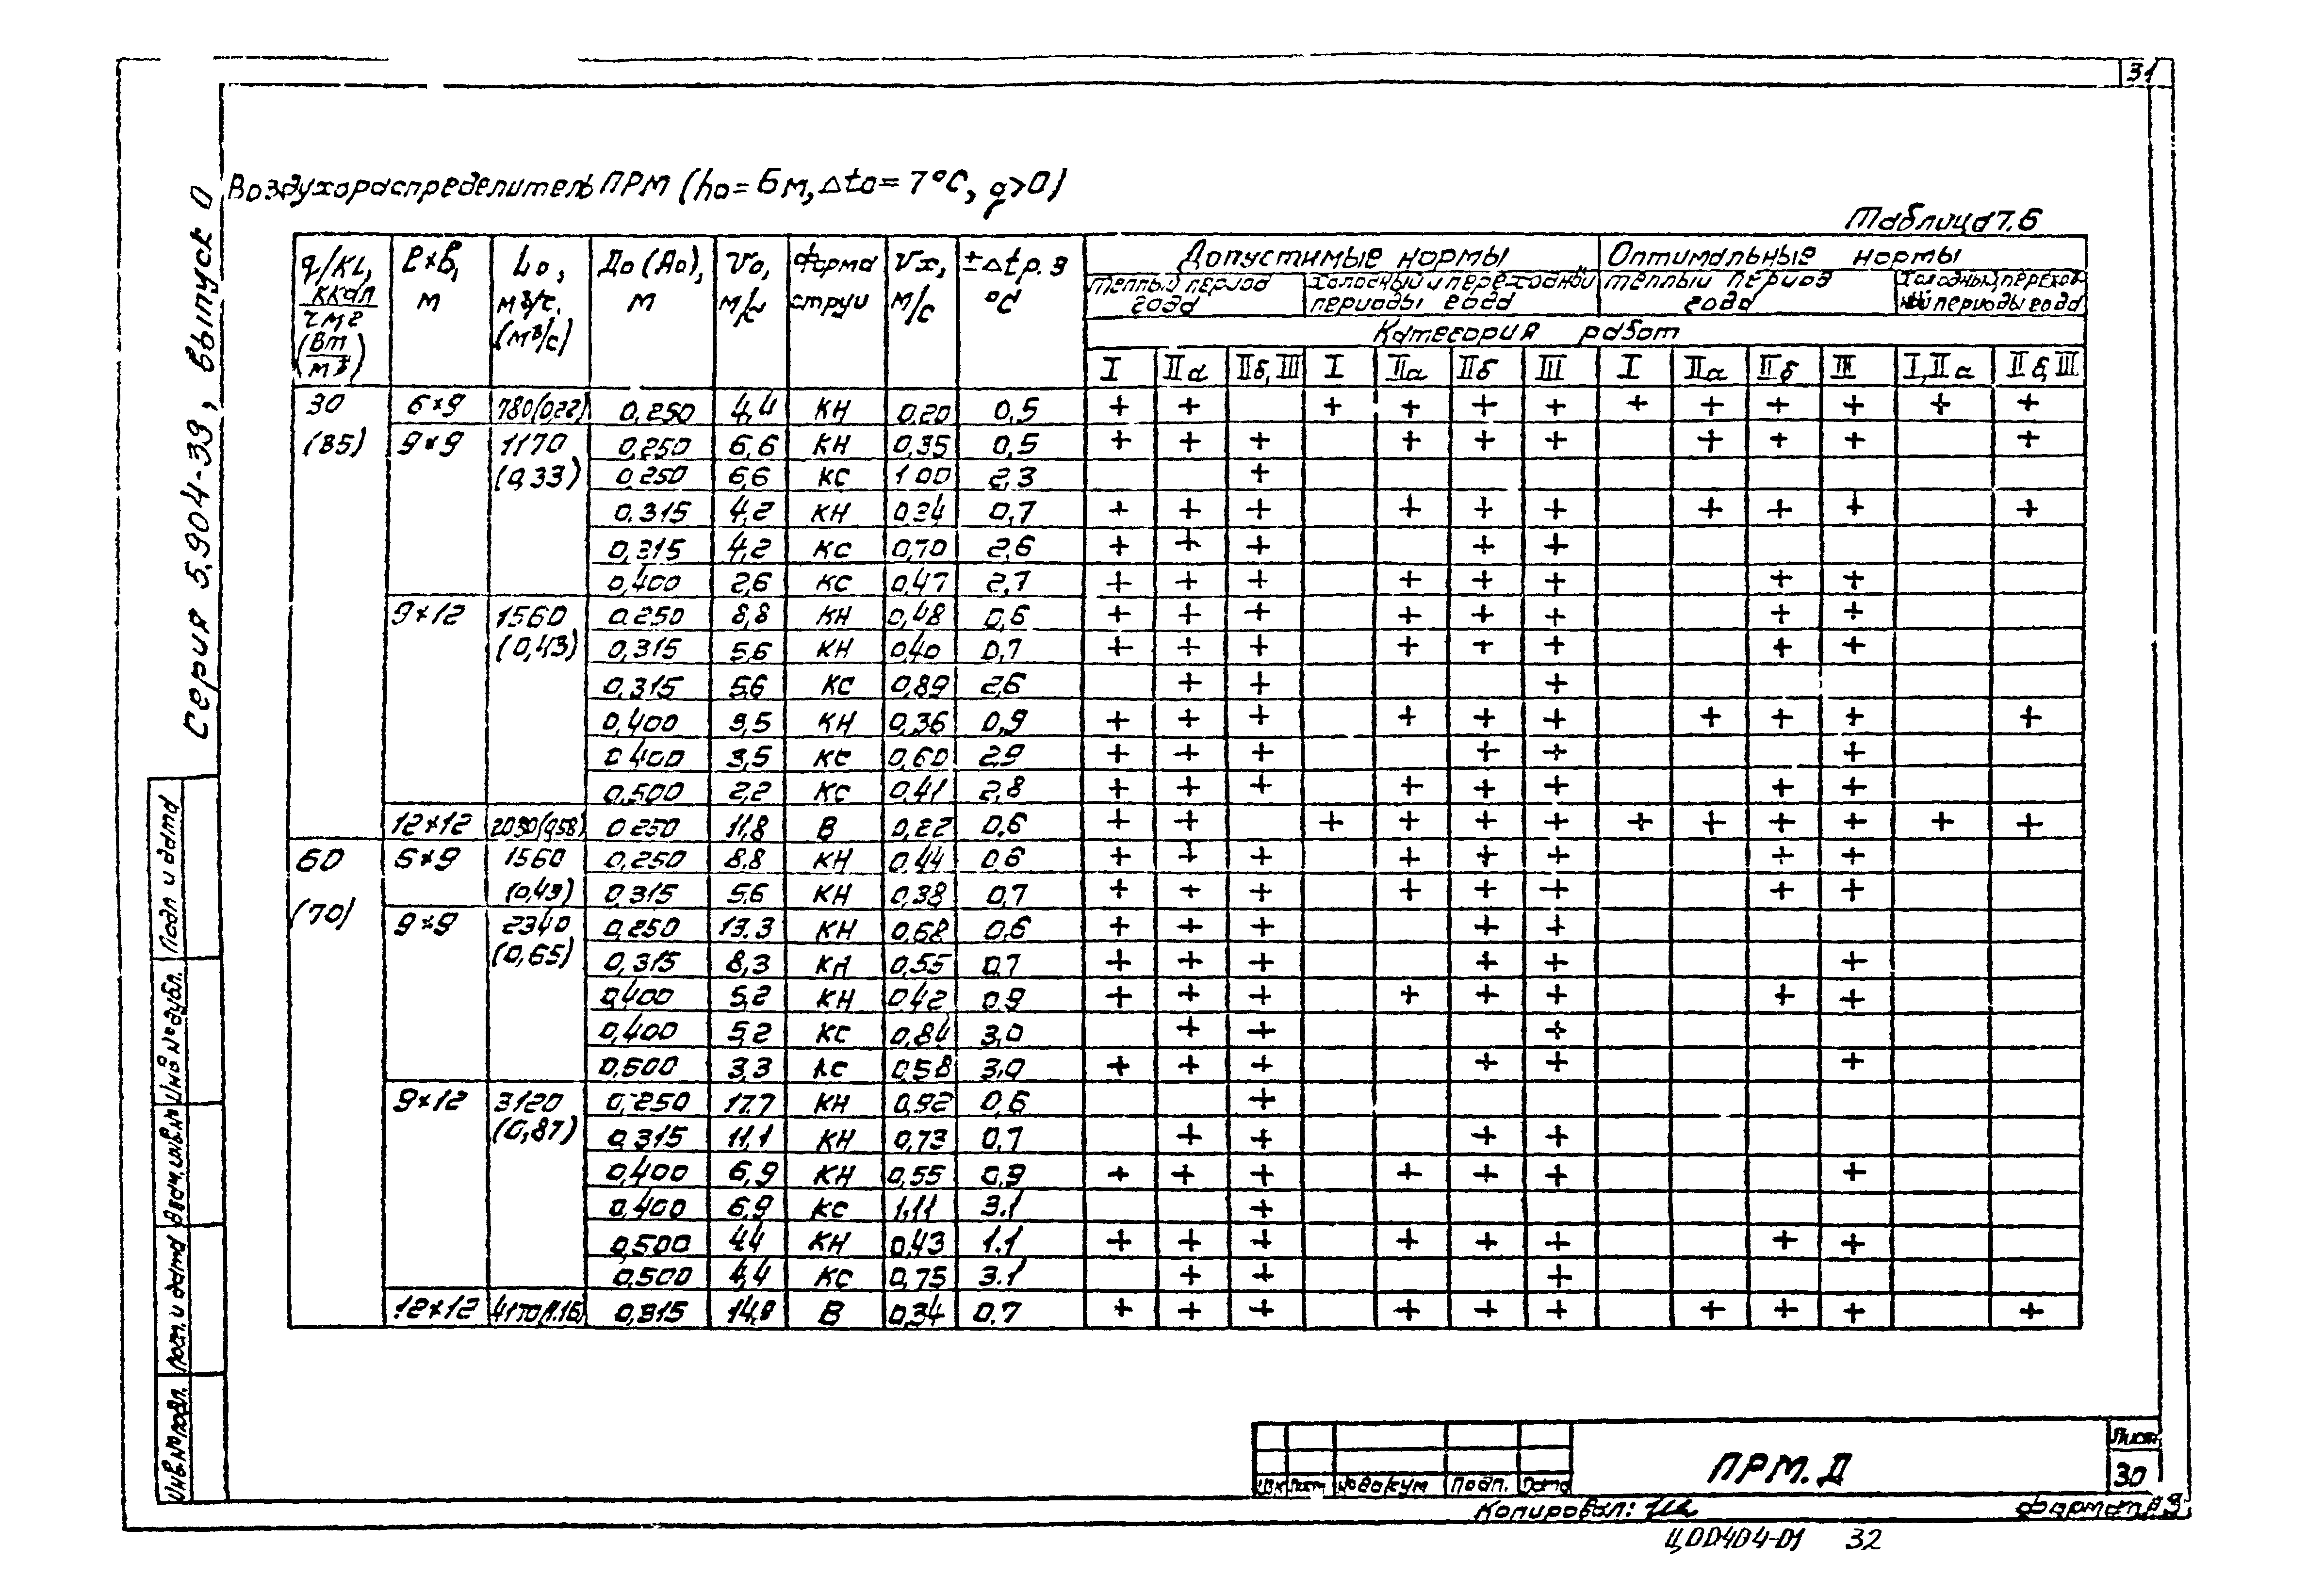 31
Воздухораспределитель ПРМ (ho=6м, Δto=7°С, q>0)
Таблица 7.6
Серия 5.904-39, выпуск 0
q/KL, ккал/чм² (Вт/м²) | ℓ×в, м | Lo, м³/ч. (м³/с) | До (Ао), м | Vо, м/с | Форма струи | Vх, м/с | ±Δtр.з °С | Допустимые нормы | Оптимальные нормы
теплый период года | Холодный и переходной периоды года | теплый период года | Холодный, переходный периоды года
Категория работ
I | IIа | IIб, III | I | IIа | IIб | III | I | IIа | IIб | III | I, IIа | IIб, III
30 | 6×9 | 780(0,22) | 0,250 | 4,4 | КН | 0,20 | 0,5 | + | + | | + | + | + | + | + | + | + | + | + | +
(85) | 9×9 | 1170 | 0,250 | 6,6 | КН | 0,35 | 0,5 | + | + | + | | + | + | + | | + | + | + | | +
(0,33) | 0,250 | 6,6 | КС | 1 00 | 2,3 | | | +
0,315 | 4,2 | КН | 0,34 | 0,7 | + | + | + | | + | + | + | | + | + | + | | +
0,315 | 4,2 | КС | 0,70 | 2,6 | + | + | + | | | + | +
0,400 | 2,6 | КС | 0,47 | 2,7 | + | + | + | | + | + | + | | | + | +
9×12 | 1560 | 0,250 | 8,8 | КН | 0,48 | 0,6 | + | + | + | | + | + | + | | | + | +
(0,43) | 0,315 | 5,6 | КН | 0,40 | 0,7 | + | + | + | | + | + | + | | | + | +
0,315 | 5,6 | КС | 0,89 | 2,6 | | + | + | | | | +
0,400 | 3,5 | КН | 0,36 | 0,9 | + | + | + | | + | + | + | | + | + | + | | +
0 400 | 3,5 | КС | 0,60 | 2,9 | + | + | + | | | + | + | | | | +
0,500 | 2,2 | КС | 0,41 | 2,8 | + | + | + | | + | + | + | | | + | +
12×12 | 2030(0,58) | 0 250 | 11,8 | В | 0,22 | 0,6 | + | + | | + | + | + | + | + | + | + | + | + | +
60 | 6×9 | 1560 | 0,250 | 8,8 | КН | 0,44 | 0,6 | + | + | + | | + | + | + | | | + | +
(0,43) | 0,315 | 5,6 | КН | 0,38 | 0,7 | + | + | + | | + | + | + | | | + | +
(70) | 9×9 | 2340 | 0,250 | 13,3 | КН | 0,68 | 0,6 | + | + | + | | | + | +
(0,65) | 0,315 | 8,3 | КН | 0,55 | 0,7 | + | + | + | | | + | + | | | | +
0,400 | 5,2 | КН | 0,42 | 0,9 | + | + | + | | + | + | + | | | + | +
0,400 | 5,2 | КС | 0,84 | 3,0 | | + | + | | | | +
0,500 | 3,3 | КС | 0,58 | 3,0 | + | + | + | | | + | + | | | | +
9×12 | 3120 | 0,250 | 17,7 | КН | 0,92 | 0,6 | | | +
(0,87) | 0,315 | 11,1 | КН | 0,73 | 0,7 | | + | + | | | + | +
0,400 | 6,9 | КН | 0,55 | 0,9 | + | + | + | | + | + | + | | | | +
0,400 | 6,9 | КС | 1.11 | 3.1 | | | +
0,500 | 4,4 | КН | 0,43 | 1.1 | + | + | + | | + | + | + | | | + | +
0,500 | 4,4 | КС | 0,75 | 3.1 | | + | + | | | | +
12×12 | 4170(1.16) | 0,315 | 14,8 | В | 0,34 | 0.7 | + | + | + | | + | + | + | | + | + | + | | +
Подп и дата
Инв № дубл.
Взам. инв. №
Подп. и дата
Инв. № подл.
Изм Лист № докум Подп. Дата
ПРМ.Д
Лист
30
Копировал:
Формат А3
Ц00404-01 32